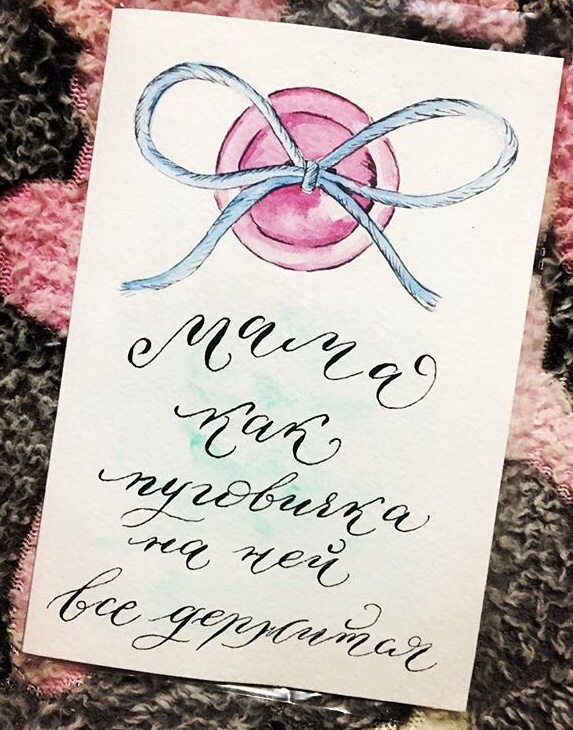 мама
как
пуговичка
на ней
все держится